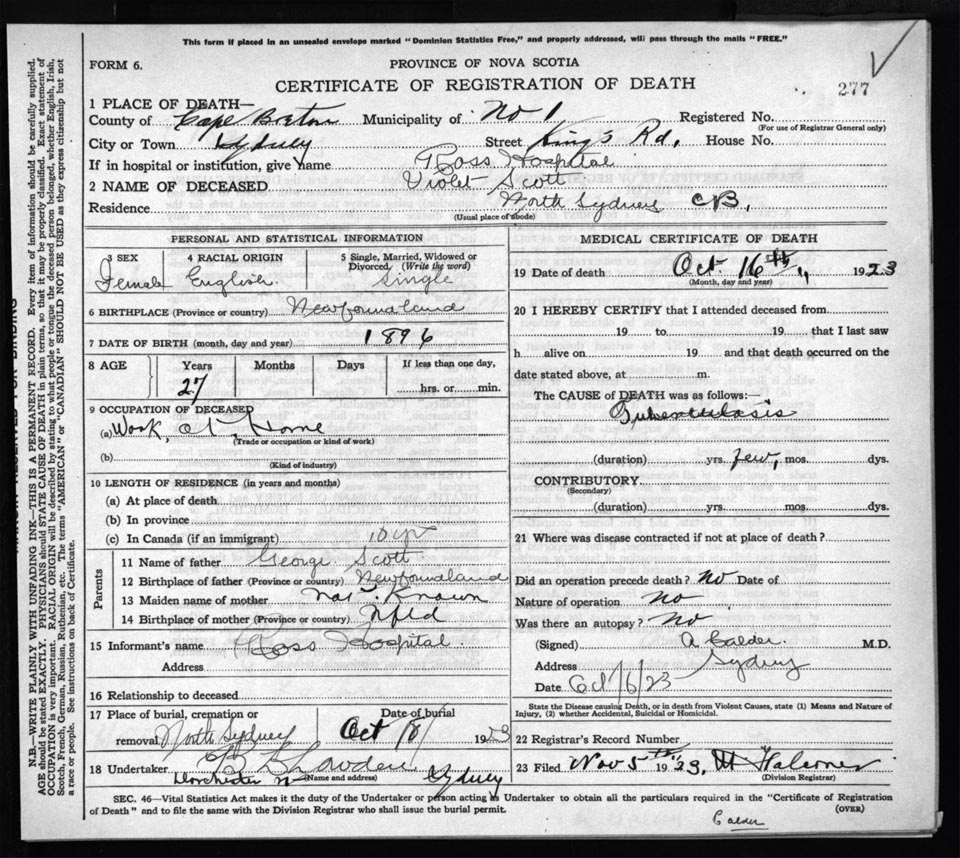 This form if placed in an unsealed envelope marked "Dominion Statistics Free," and properly addressed, will pass through the mails "FREE."
FORM 6.
PROVINCE OF NOVA SCOTIA
CERTIFICATE OF REGISTRATION OF DEATH
277
1 PLACE OF DEATH—
County of Cape Breton Municipality of No 1 Registered No.
(For use of Registrar General only)
City or Town Sydney Street King's Rd, House No.
If in hospital or institution, give name Ross Hospital
2 NAME OF DECEASED Violet Scott
Residence North Sydney CB.
(Usual place of abode)
PERSONAL AND STATISTICAL INFORMATION
3 SEX 4 RACIAL ORIGIN 5 Single, Married, Widowed or Divorced (Write the word)
Female English Single
6 BIRTHPLACE (Province or country) Newfoundland
7 DATE OF BIRTH (month, day and year) 1896
8 AGE Years Months Days If less than one day,
27 hrs. or min.
9 OCCUPATION OF DECEASED
(a) Work at Home
(Trade or occupation or kind of work)
(b)
(Kind of industry)
10 LENGTH OF RESIDENCE (in years and months)
(a) At place of death
(b) In province
(c) In Canada (if an immigrant) 10 yrs
Parents
11 Name of father George Scott
12 Birthplace of father (Province or country) Newfoundland
13 Maiden name of mother Not Known
14 Birthplace of mother (Province or country) Nfld
15 Informant's name Ross Hospital
Address
16 Relationship to deceased
17 Place of burial, cremation or Date of burial
removal North Sydney Oct 18 1923
18 Undertaker
(Name and address)
Dorchester Sydney
MEDICAL CERTIFICATE OF DEATH
19 Date of death Oct. 16th 1923
(Month, day and year)
20 I HEREBY CERTIFY that I attended deceased from
19 to 19 that I last saw
h alive on 19 and that death occurred on the
date stated above, at m.
The CAUSE of DEATH was as follows:—
Tuberculosis
(duration) yrs. few, mos. dys.
CONTRIBUTORY
(Secondary)
(duration) yrs. mos. dys.
21 Where was disease contracted if not at place of death?
Did an operation precede death? No Date of
Nature of operation No
Was there an autopsy? No
(Signed) A Calder. M.D.
Address Sydney
Date Oct 16/23
State the Disease causing Death, or in death from Violent Causes, state (1) Means and Nature of Injury, (2) whether Accidental, Suicidal or Homicidal.
22 Registrar's Record Number
23 Filed Nov 5th 1923,
(Division Registrar)
SEC. 46—Vital Statistics Act makes it the duty of the Undertaker or person acting as Undertaker to obtain all the particulars required in the "Certificate of Registration
of Death" and to file the same with the Division Registrar who shall issue the burial permit.
(OVER)
Calder
N.B.—WRITE PLAINLY WITH UNFADING INK—THIS IS A PERMANENT RECORD. Every item of information should be carefully supplied.
AGE should be stated EXACTLY. PHYSICIANS should STATE CAUSE OF DEATH in plain terms, so that it may be properly classified. Exact statement of
OCCUPATION is very important. RACIAL ORIGIN will be described by stating to what people or tongue the deceased person belonged, whether English, Irish,
Scotch, French, German, Russian, Ruthenian, etc. The terms "AMERICAN" or "CANADIAN" SHOULD NOT BE USED as they express citizenship but not
a race or people. See instructions on back of Certificate.